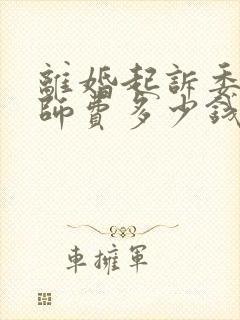 離婚起訴委
師費多少錢
車擁軍